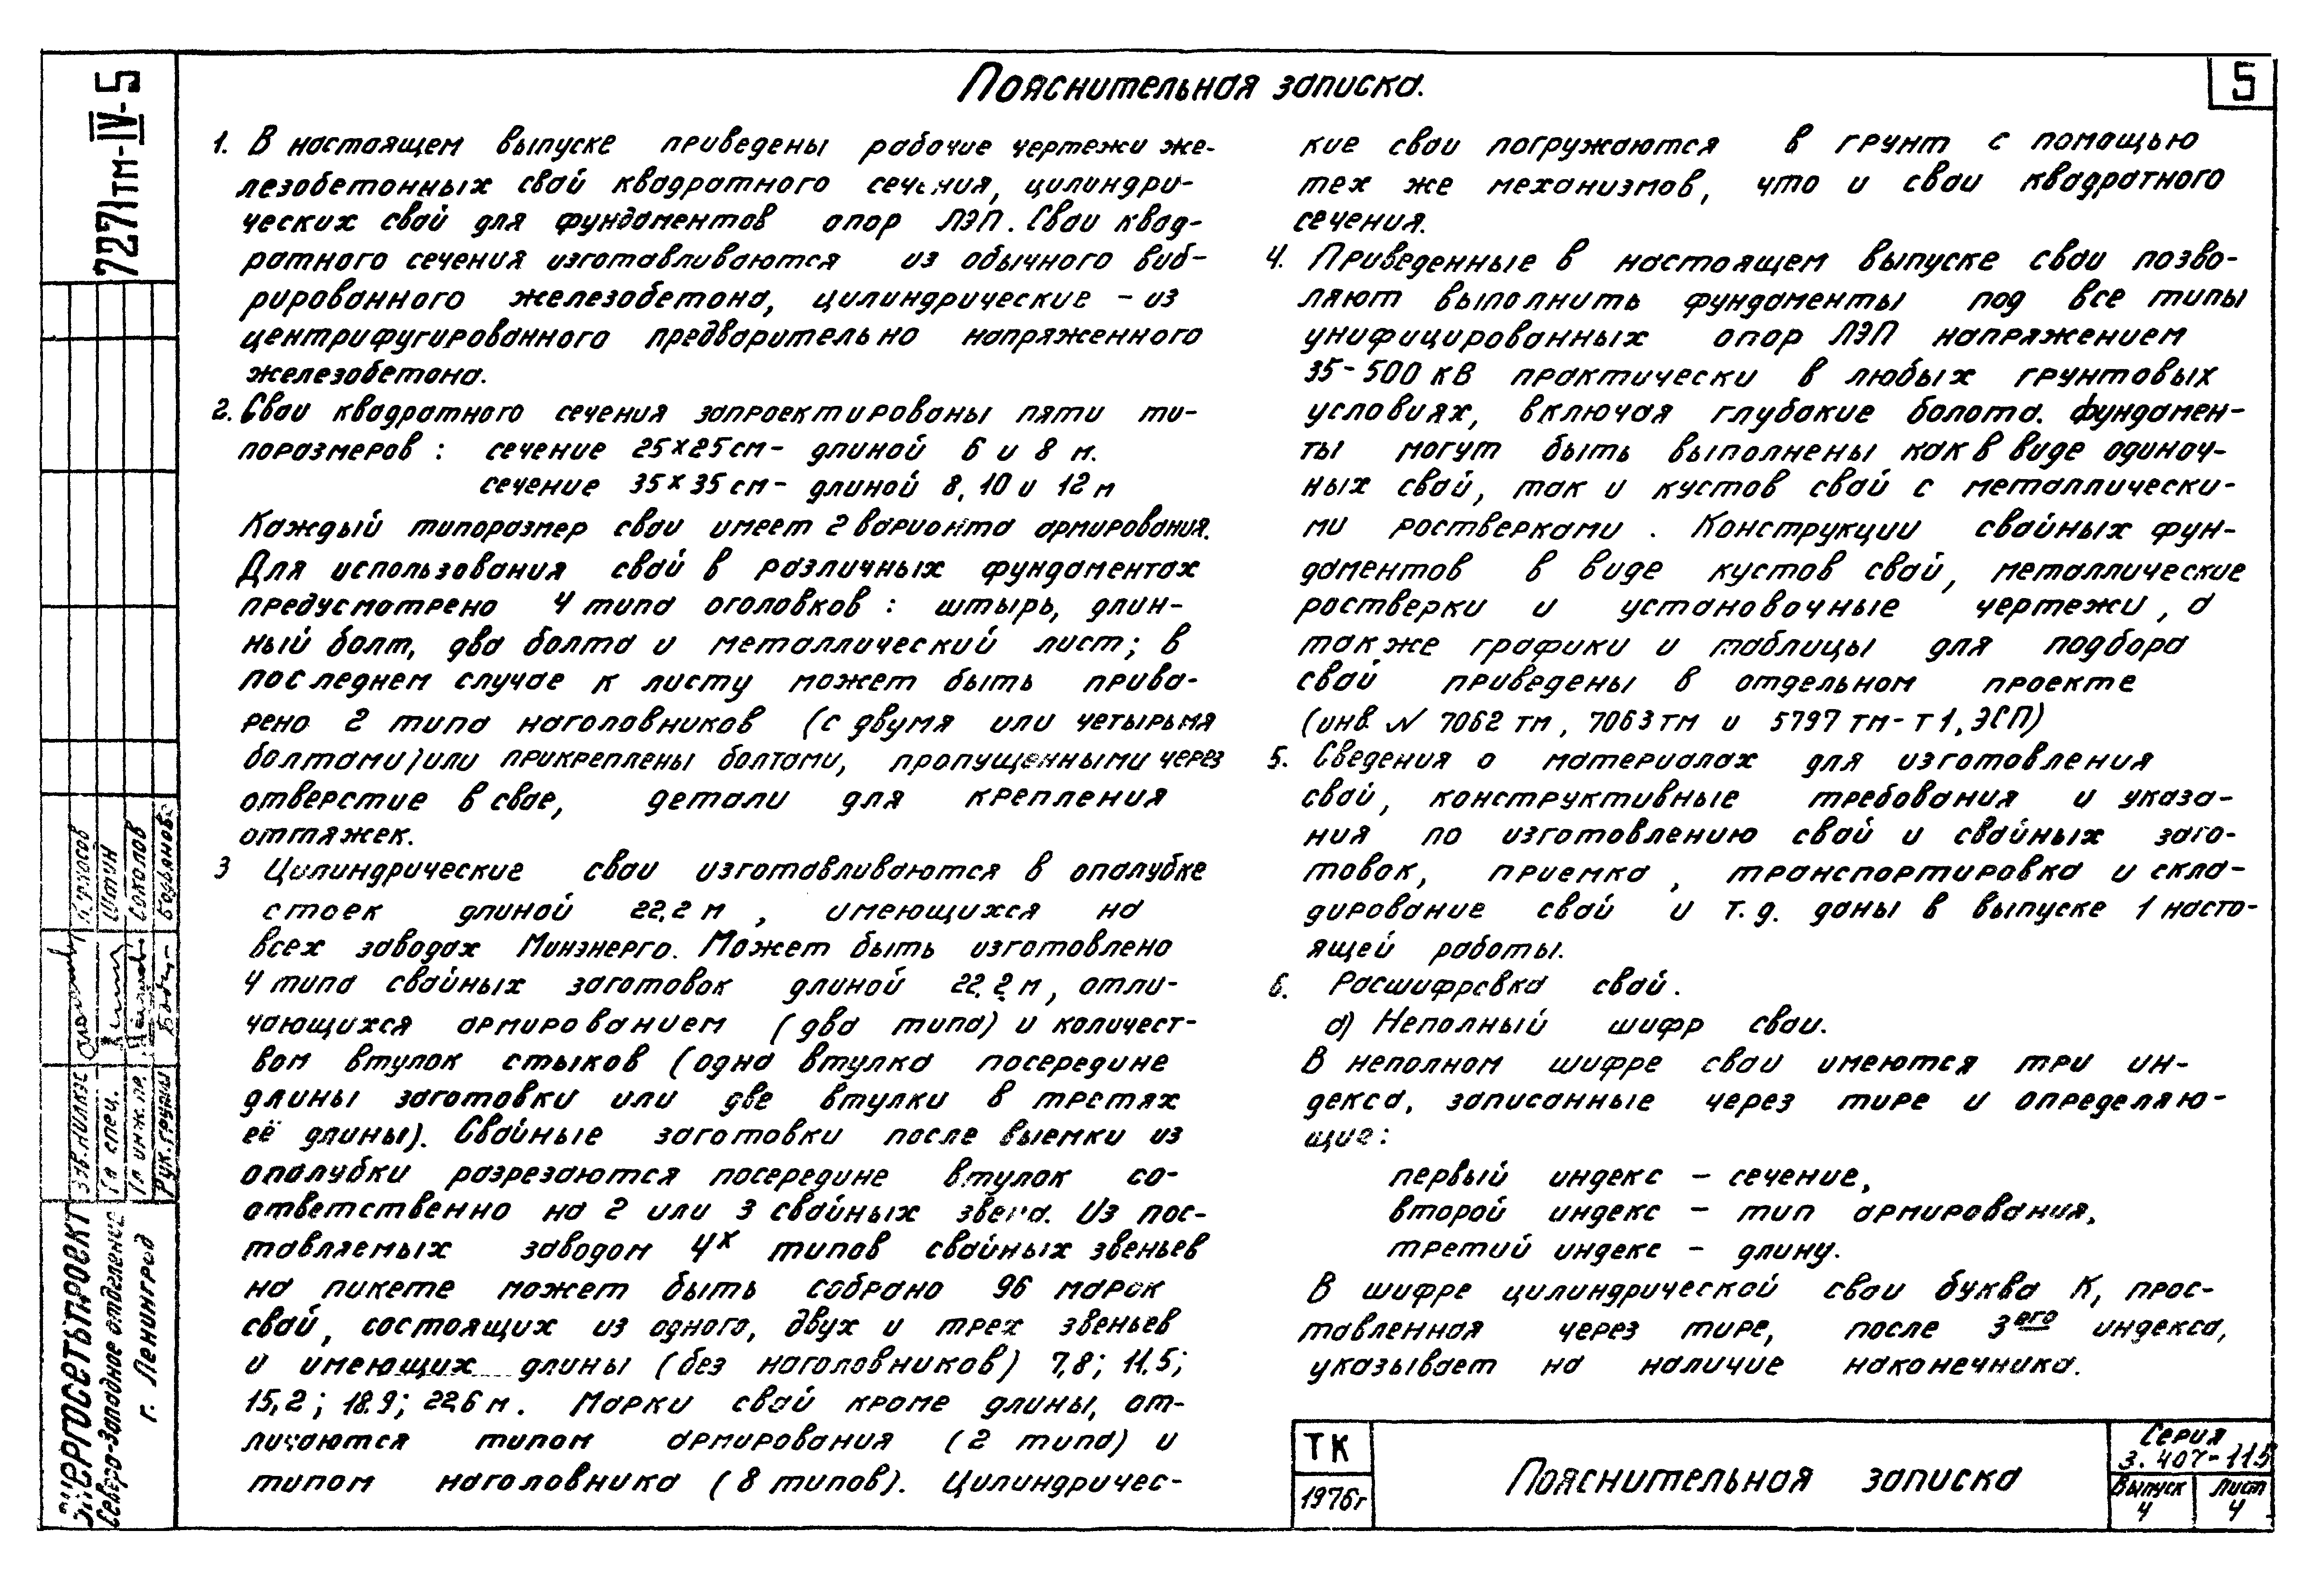 Пояснительная записка.
5
7271тм-IV-5
1. В настоящем выпуске приведены рабочие чертежи же-
лезобетонных свай квадратного сечения, цилиндри-
ческих свай для фундаментов опор ЛЭП. Сваи квад-
ратного сечения изготавливаются из обычного виб-
рированного железобетона, цилиндрические - из
центрифугированного предварительно напряженного
железобетона.
2. Сваи квадратного сечения запроектированы пяти ти-
поразмеров: сечение 25×25см- длиной 6 и 8 м.
сечение 35×35см- длиной 8, 10 и 12м
Каждый типоразмер сваи имеет 2 варианта армирования.
Для использования свай в различных фундаментах
предусмотрено 4 типа оголовков: штырь, длин-
ный болт, два болта и металлический лист; в
последнем случае к листу может быть прива-
рено 2 типа наголовников (с двумя или четырьмя
болтами) или прикреплены болтами, пропущенными через
отверстие в свае, детали для крепления
оттяжек.
3 Цилиндрические сваи изготавливаются в опалубке
стоек длиной 22,2м, имеющихся на
всех заводах Минэнерго. Может быть изготовлено
4 типа свайных заготовок длиной 22,2м, отли-
чающихся армированием (два типа) и количест-
вом втулок стыков (одна втулка посередине
длины заготовки или две втулки в третях
её длины). Свайные заготовки после выемки из
опалубки разрезаются посередине втулок со-
ответственно на 2 или 3 свайных звена. Из пос-
тавляемых заводом 4х типов свайных звеньев
на пикете может быть собрано 96 марок
свай, состоящих из одного, двух и трех звеньев
и имеющих длины (без наголовников) 7,8; 11.5;
15,2; 18.9; 22,6м. Марки свай кроме длины, от-
личаются типом армирования (2 типа) и
типом наголовника (8 типов). Цилиндричес-
кие сваи погружаются в грунт с помощью
тех же механизмов, что и сваи квадратного
сечения.
4. Приведенные в настоящем выпуске сваи позво-
ляют выполнить фундаменты под все типы
унифицированных опор ЛЭП напряжением
35-500кВ практически в любых грунтовых
условиях, включая глубокие болота. Фундамен-
ты могут быть выполнены как в виде одиноч-
ных свай, так и кустов свай с металлически-
ми ростверками. Конструкции свайных фун-
даментов в виде кустов свай, металлические
ростверки и установочные чертежи, а
также графики и таблицы для подбора
свай приведены в отдельном проекте
(инв. N 7062тм, 7063тм и 5797тм-т1, ЭСП)
5. Сведения о материалах для изготовления
свай, конструктивные требования и указа-
ния по изготовлению свай и свайных заго-
товок, приемка, транспортировка и скла-
дирование свай и т.д. даны в выпуске 1 насто-
ящей работы.
6. Расшифровка свай.
а) Неполный шифр сваи.
В неполном шифре сваи имеются три ин-
декса, записанные через тире и определяю-
щие:
первый индекс - сечение,
второй индекс - тип армирования,
третий индекс - длину.
В шифре цилиндрической сваи буква К, прос-
тавленная через тире, после 3его индекса,
указывает на наличие наконечника.
ТК
1976г
Пояснительная записка
Серия
3.407-115
Выпуск
4
Лист
4
Энергосетьпроект
Северо-Западное отделение
г. Ленинград
Зав. НИЛКЭС Курносов
Гл спец. Штун
Гл инж. пр. Соколов
Рук. группы